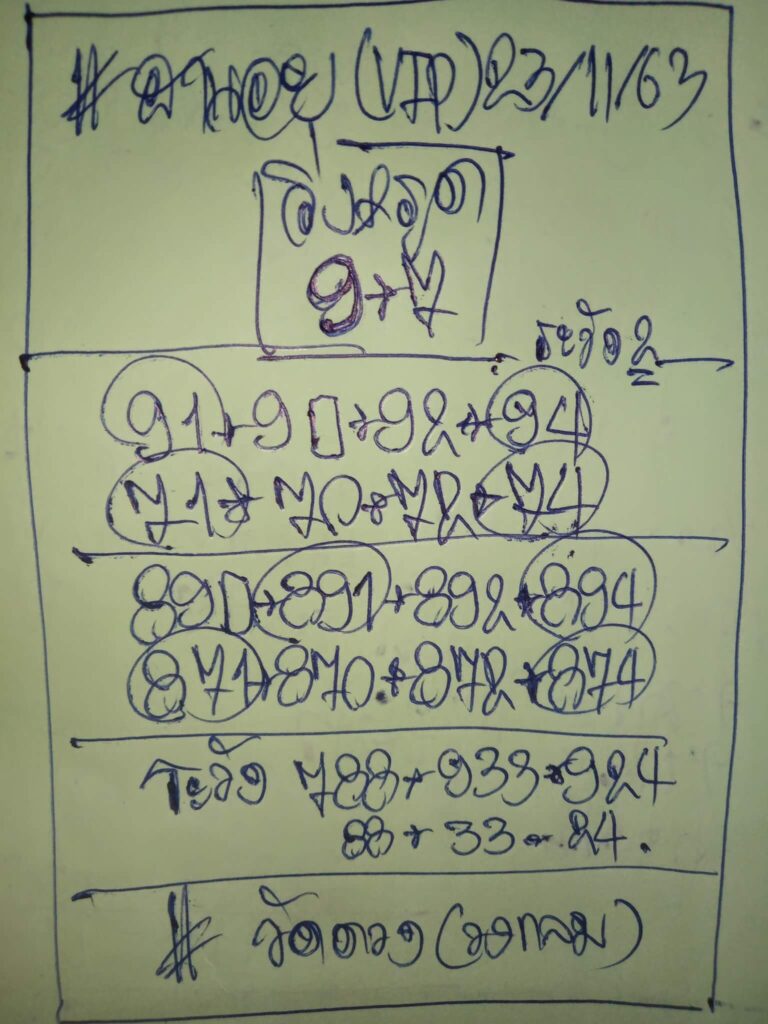 #ฮานอย (VIP) 23/11/63
วิ่งหรูด
9+7
ระวัง 2
91+90+92+94
71+70+72+74
890+891+892+894
871+870+872+874
ระวัง 788+933+924
88+33-24.
# วัดดวง (วงกลม)